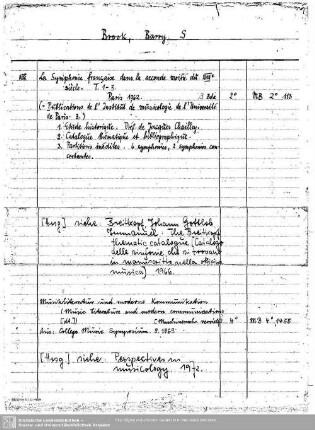 Brook, Barry, S
La Symphonie française dans la seconde moitié du XVIIIe
siècle. T. 1-3
Paris 1962. 3 Bde 2° MB 2° 113
(= Publications de l'Institut de musicologie de l'Université
de Paris. 3.)
1. Etude historique. Préf. de Jacques Chailley.
2. Catalogue thématique et bibliographique.
3. Partitions inédites. 6 symphonies, 2 symphonies con-
certantes.
[Hrsg.] siehe: Breitkopf, Johann Gottlob
Immanuel: The Breitkopf
thematic catalogue [Catalogo
delle sinfonie, che si trovano
in manuscritto nella officina
musica] 1966.
Musikliteratur und moderne Kommunikation
[Music literature and modern communication
[dt.]] 4° MB 4° 1458
Aus: College Music Symposium. 9. 1969
[Hrsg.] siehe: Perspectives in
musicology 1972.